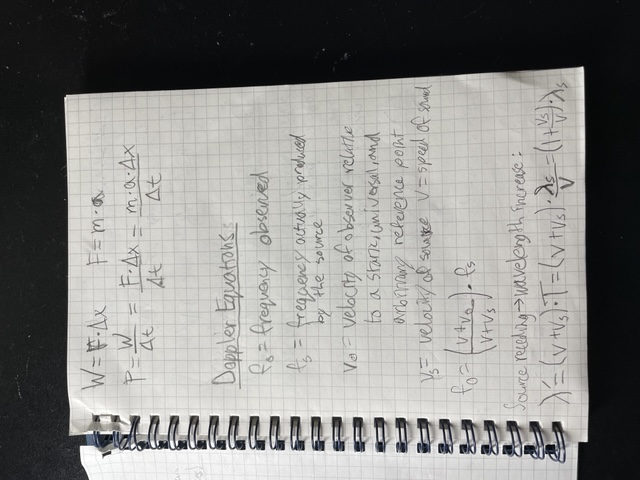 W = F·Δx F = m·a
P = W/Δt = F·Δx/Δt = m·a·Δx/Δt
Doppler Equations:
f₀ = frequency observed
fₛ = frequency actually produced
by the source
v₀ = velocity of observer relative
to a static, universal, and
arbitrary reference point
vₛ = velocity of source v = speed of sound
f₀ = (v+v₀/v+vₛ)·fₛ
Source receding → wavelength increase:
λ' = (v+vₛ)·T = (v+vₛ)·λₛ/v = (1+vₛ/v)·λₛ